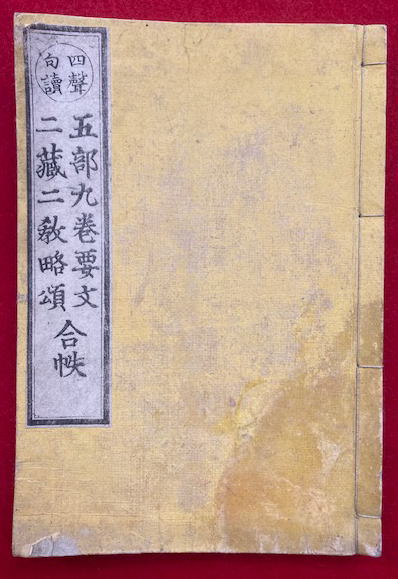 四聲
句讀
五部九卷要文
二藏二教略頌
合帙